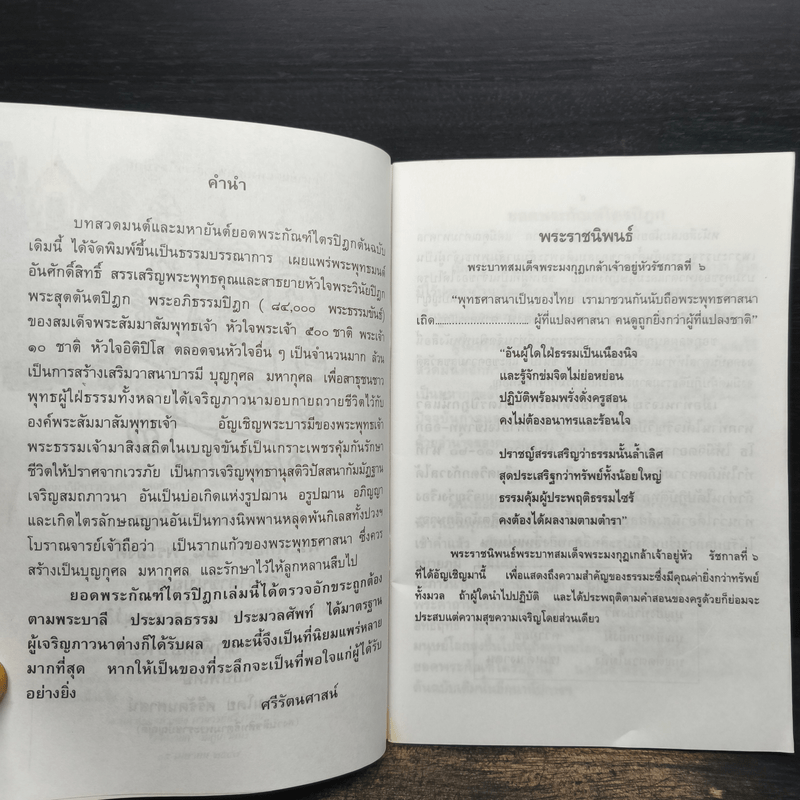 คำนำ
บทสวดมนต์และมหายันต์ยอดพระกัณฑ์ไตรปิฎกต้นฉบับ
เดิมนี้ ได้จัดพิมพ์ขึ้นเป็นธรรมบรรณาการ เผยแพร่พระพุทธมนต์
อันศักดิ์สิทธิ์ สรรเสริญพระพุทธคุณและสาธยายหัวใจพระวินัยปิฎก
พระสุตตันตปิฎก พระอภิธรรมปิฎก ( ๘๔,๐๐๐ พระธรรมขันธ์)
ของสมเด็จพระสัมมาสัมพุทธเจ้า หัวใจพระเจ้า ๕๐๐ ชาติ พระเจ้า
๑๐ ชาติ หัวใจอิติปิโส ตลอดจนหัวใจอื่น ๆ เป็นจำนวนมาก ล้วน
เป็นการสร้างเสริมวาสนาบารมี บุญกุศล มหากุศล เพื่อสาธุชนชาว
พุทธผู้ใฝ่ธรรมทั้งหลายได้เจริญภาวนามอบกายถวายชีวิตไว้กับ
องค์พระสัมมาสัมพุทธเจ้า อัญเชิญพระบารมีของพระพุทธเจ้า
พระธรรมเจ้ามาสิงสถิตในเบญจขันธ์เป็นเกราะเพชรคุ้มกันรักษา
ชีวิตให้ปราศจากเวรภัย เป็นการเจริญพุทธานุสติวิปัสสนากัมมัฏฐาน
เจริญสมถภาวนา อันเป็นบ่อเกิดแห่งรูปฌาน อรูปฌาน อภิญญา
และเกิดไตรลักษณญานอันเป็นทางนิพพานหลุดพ้นกิเลสทั้งปวงฯ
โบราณจารย์เจ้าถือว่า เป็นรากแก้วของพระพุทธศาสนา ซึ่งควร
สร้างเป็นบุญกุศล มหากุศล และรักษาไว้ให้ลูกหลานสืบไป
ยอดพระกัณฑ์ไตรปิฎกเล่มนี้ได้ตรวจอักขระถูกต้อง
ตามพระบาลี ประมวลธรรม ประมวลศัพท์ ได้มาตรฐาน
ผู้เจริญภาวนาต่างก็ได้รับผล ขณะนี้จึงเป็นที่นิยมแพร่หลาย
มากที่สุด หากให้เป็นของที่ระลึกจะเป็นที่พอใจแก่ผู้ได้รับ
อย่างยิ่ง
ศรีรัตนศาสน์
พระราชนิพนธ์
พระบาทสมเด็จพระมงกุฎเกล้าเจ้าอยู่หัวรัชกาลที่ ๖
“พุทธศาสนาเป็นของไทย เรามาชวนกันนับถือพระพุทธศาสนา
เถิด............................... ผู้ที่แปลงศาสนา คนดูถูกยิ่งกว่าผู้ที่แปลงชาติ”
“อันผู้ใดใฝ่ธรรมเป็นเนืองนิจ
และรู้จักข่มจิตไม่ย่อหย่อน
ปฏิบัติพร้อมพรั่งดั่งครูสอน
คงไม่ต้องอนาทรและร้อนใจ
ปราชญ์สรรเสริญว่าธรรมนั้นล้ำเลิศ
สุดประเสริฐกว่าทรัพย์ทั้งน้อยใหญ่
ธรรมคุ้มผู้ประพฤติธรรมไซร้
คงต้องได้ผลงามตามตำรา”
พระราชนิพนธ์พระบาทสมเด็จพระมงกุฎเกล้าเจ้าอยู่หัว รัชกาลที่ ๖
ที่ได้อัญเชิญมานี้ เพื่อแสดงถึงความสำคัญของธรรมะซึ่งมีคุณค่ายิ่งกว่าทรัพย์
ทั้งมวล ถ้าผู้ใดนำไปปฏิบัติ และได้ประพฤติตามคำสอนของครูด้วยก็ย่อมจะ
ประสบแต่ความสุขความเจริญโดยส่วนเดียว